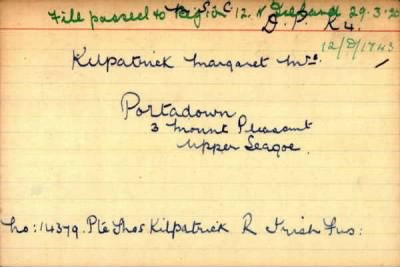 File passed to Region 12. N Ireland 29.3.20
S. C.
D. P. K4.
12/D/1743
Kilpatrick Margaret Mrs.
Portadown
3 Mount Pleasant
Upper Seagoe.
No: 14379. Pte Thos Kilpatrick R Irish Fus: